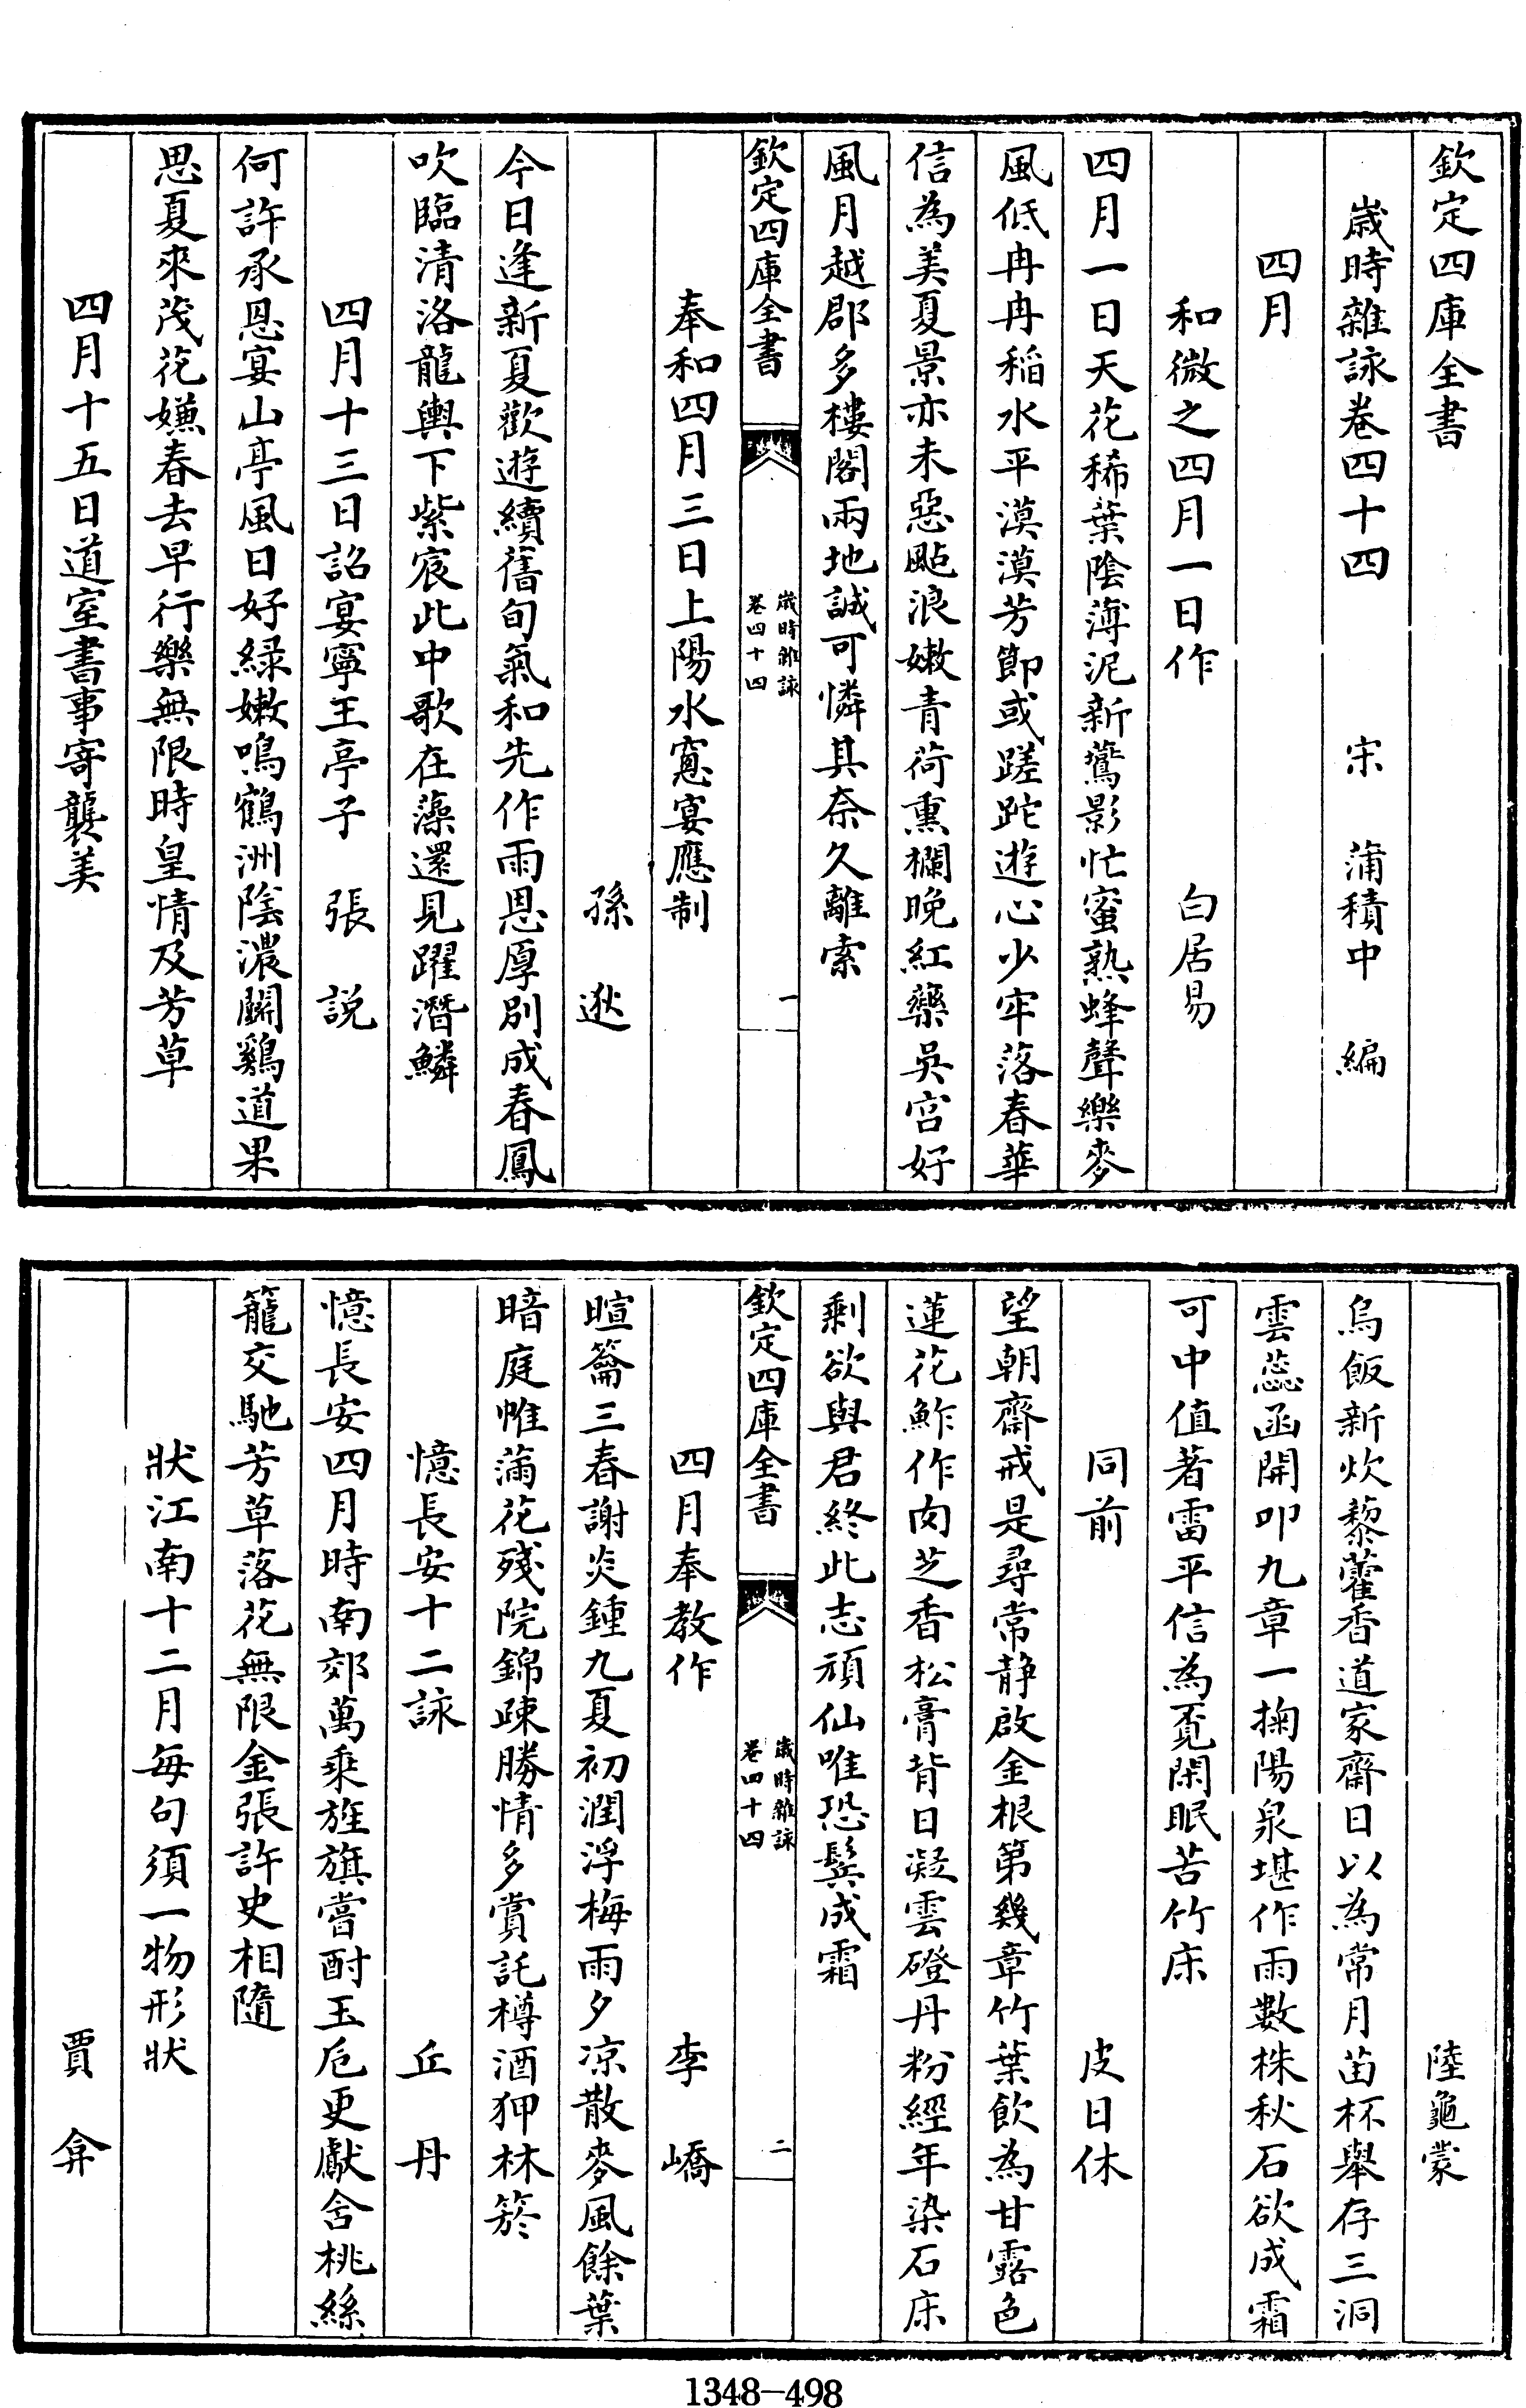 欽定四庫全書
歲時雜詠卷四十四　宋　蒲積中　編
四月
和微之四月一日作　白居易
四月一日天花稀葉陰薄泥新鷰影忙蜜熟蜂聲樂麥
風低冉冉稻水平漠漠芳節或蹉跎遊心少牢落春華
信為美夏景亦未惡颭浪嫩青荷熏欄晚紅藥吳宮好
風月越郡多樓閣兩地誠可憐其奈久離索
欽定四庫全書
歲時雜詠
卷四十四
一
奉和四月三日上陽水窻宴應制
孫逖
今日逢新夏歡遊續舊旬氣和先作雨恩厚別成春鳳
吹臨清洛龍輿下紫宸此中歌在藻還見躍潛鱗
四月十三日詔宴寧王亭子　張說
何許承恩宴山亭風日好綠嫩鳴鶴洲陰濃鬬鷄道果
思夏來茂花嫌春去早行樂無限時皇情及芳草
四月十五日道室書事寄襲美
陸龜蒙
烏飯新炊藜藿香道家齋日以為常月苗杯舉存三洞
雲蕊函開叩九章一掬陽泉堪作雨數株秋石欲成霜
可中值著雷平信為覓閑眠苦竹床
同前　皮日休
望朝齋戒是尋常静啟金根第幾章竹葉飲為甘露色
蓮花鮓作肉芝香松膏背日凝雲磴丹粉經年染石床
剩欲與君終此志頑仙唯恐鬂成霜
欽定四庫全書
歲時雜詠
卷四十四
二
四月奉教作　李嶠
暄籥三春謝炎鍾九夏初潤浮梅雨夕凉散麥風餘葉
暗庭帷蒲花殘院錦疎勝情多賞託樽酒狎林箊
憶長安十二詠　丘丹
憶長安四月時南郊萬乘旌旗嘗酎玉卮更獻含桃絲
籠交馳芳草落花無限金張許史相隨
狀江南十二月每句須一物形狀
賈弇
1348-498